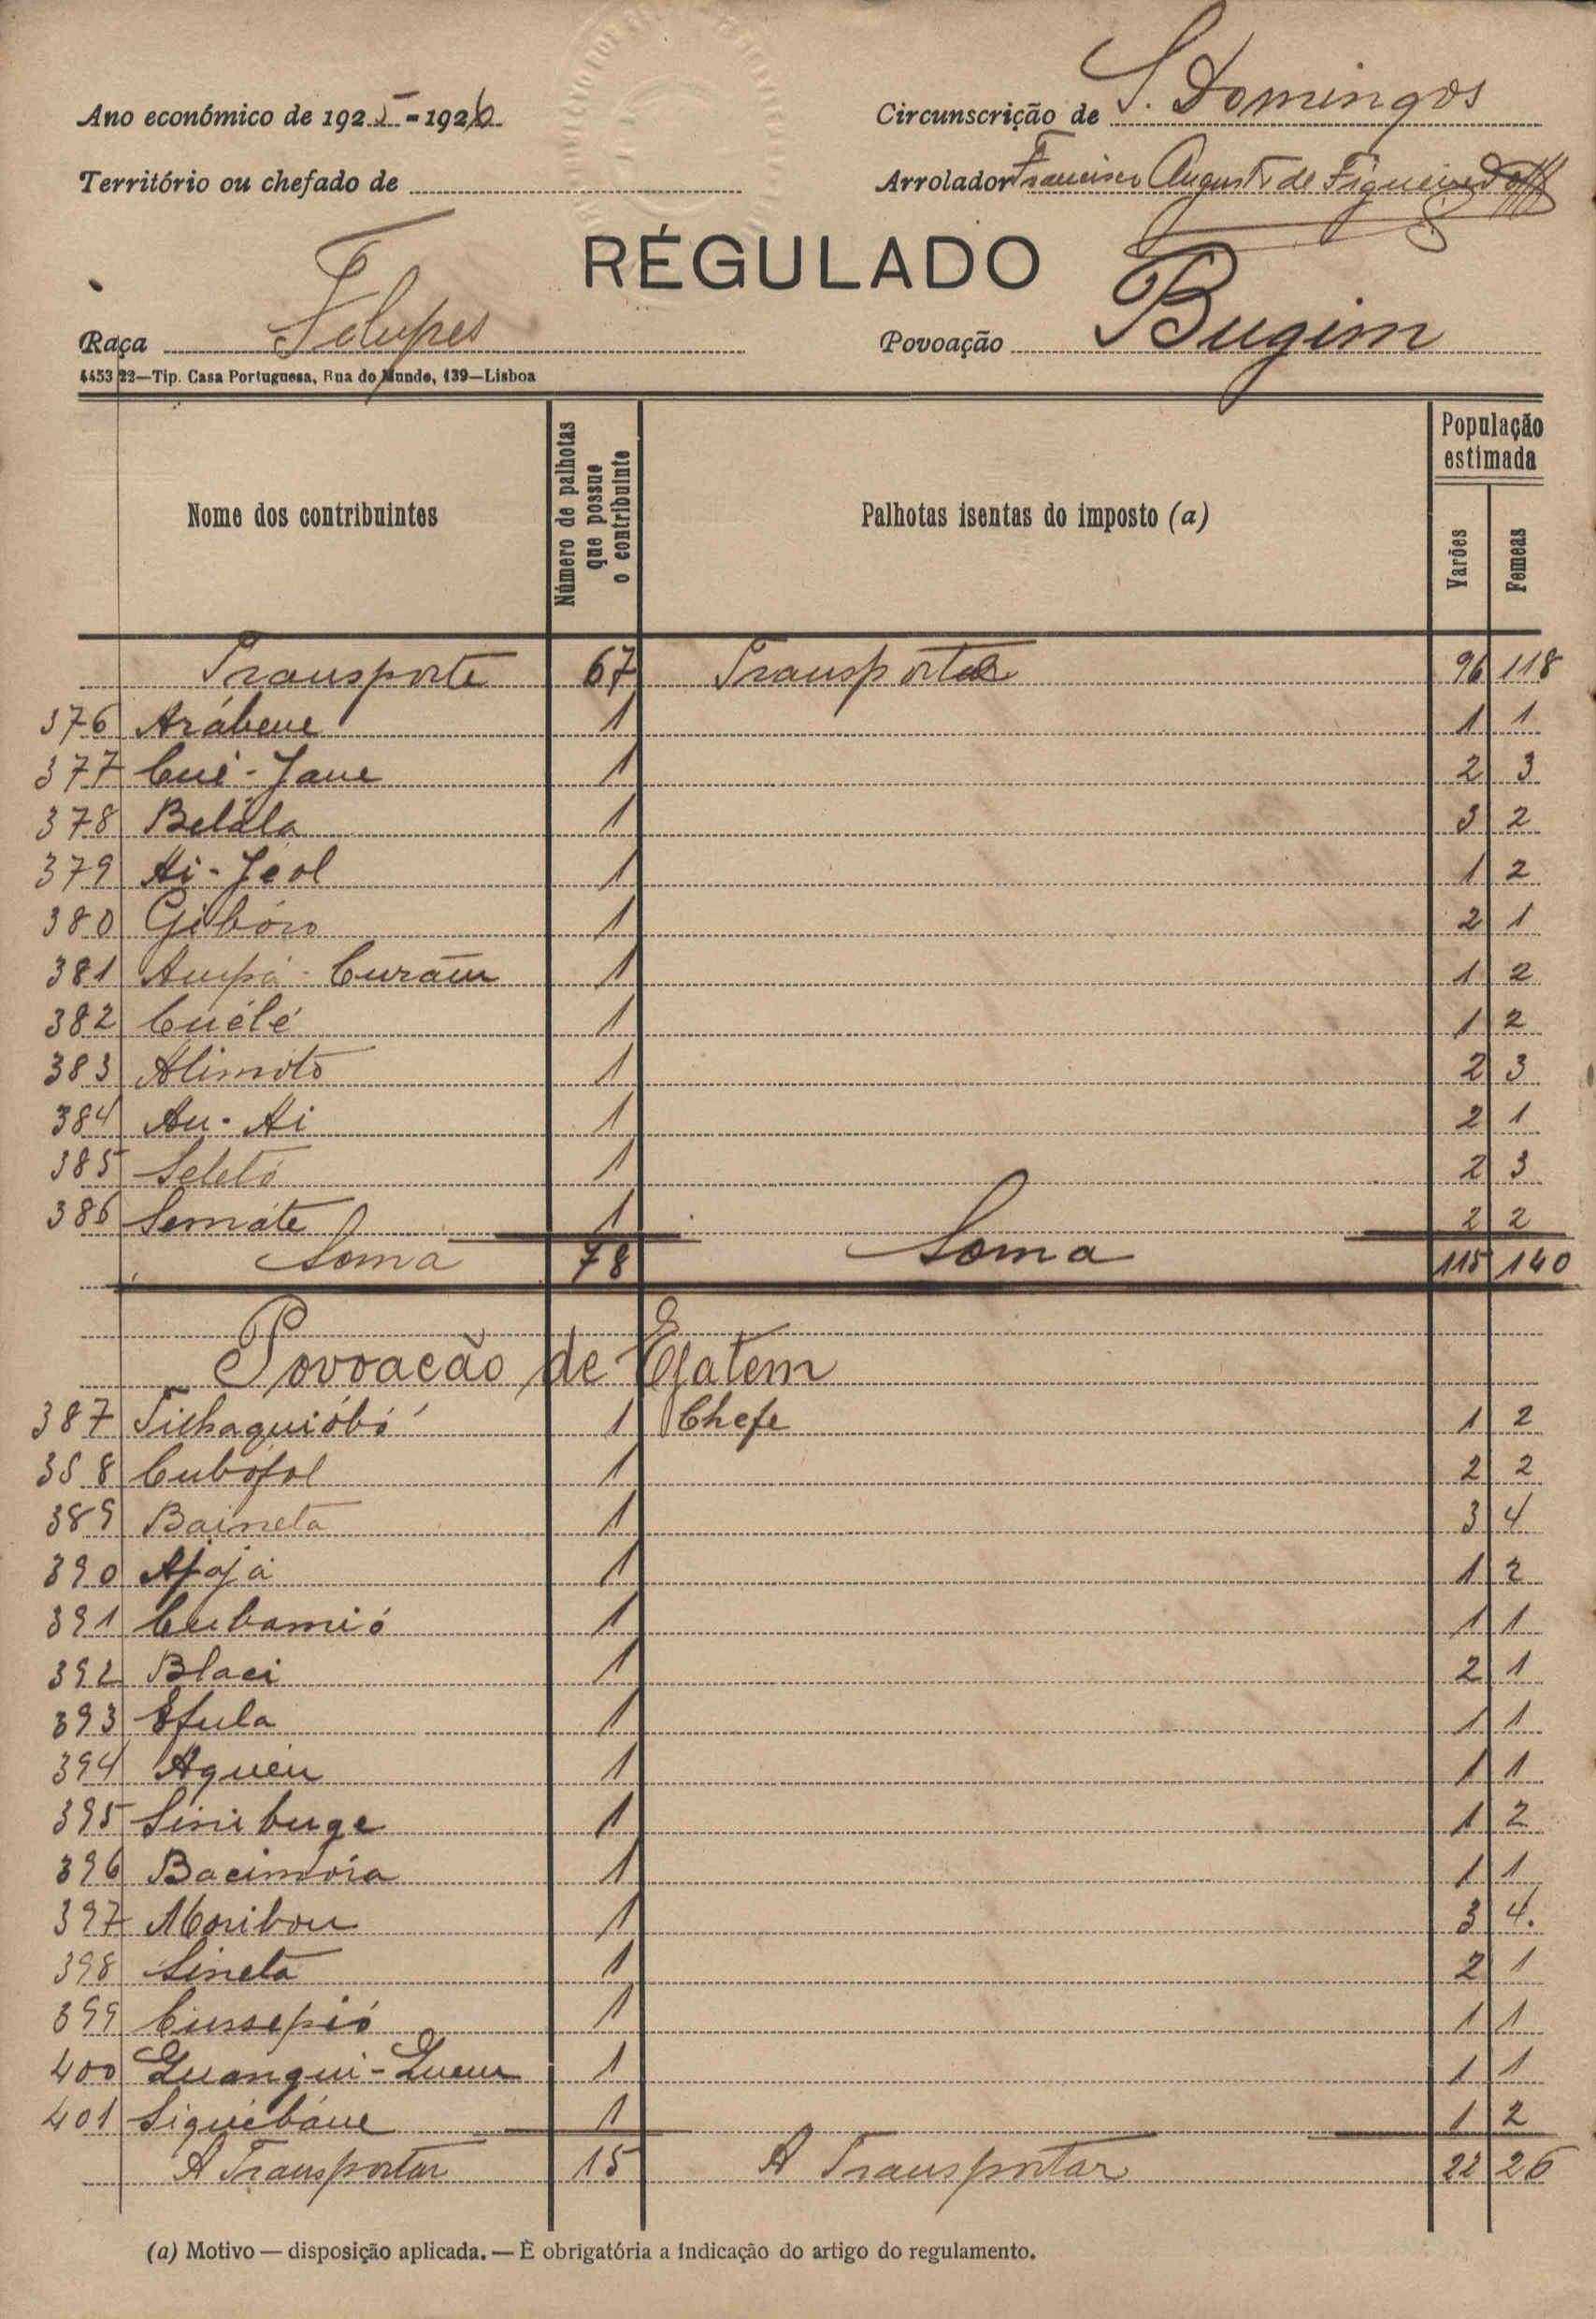 Ano económico de 1925-1926
Circunscrição de S. Domingos
Território ou chefado de
Arrolador Francisco Augusto de Figueiredo
RÉGULADO
Raça Felupes
Povoação Bugim
4453 22—Tip. Casa Portuguesa, Rua do Mundo, 139—Lisboa
Nome dos contribuintes
Número de palhotas que possue o contribuinte
Palhotas isentas do imposto (a)
População estimada
Varões
Femeas
Transporte 67 Transporte 96 118
376 Arábene 1 1 1
377 Cué-Jane 1 2 3
378 Belála 1 3 2
379 Ai-Jeol 1 1 2
380 Gibóro 1 2 1
381 Ampá-Curãm 1 1 2
382 Cuélé 1 1 2
383 Alimoto 1 2 3
384 Au-Ai 1 2 1
385 Seletó 1 2 3
386 Semáte 1 2 2
Soma 78 Soma 115 140
Povoacão de Ejatem
387 Filhaquióbó 1 Chefe 1 2
388 Cubófol 1 2 2
389 Baineta 1 3 4
390 Ajajá 1 1 2
391 Cubamió 1 1 1
392 Blaci 1 2 1
393 Efula 1 1 1
394 Aguéu 1 1 1
395 Sinibuge 1 1 2
396 Bacimóra 1 1 1
397 Moribou 1 3 4.
398 Sineta 1 2 1
399 Cussepió 1 1 1
400 Quangui-Queue 1 1 1
401 Siquébáne 1 1 2
A Transportar 15 A Transportar 22 26
(a) Motivo — disposição aplicada. — É obrigatória a indicação do artigo do regulamento.